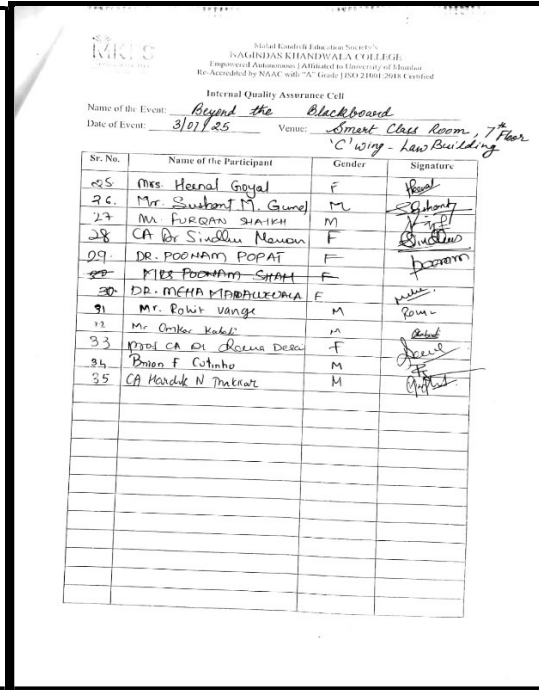 MKES
Malad Kandivli Education Society's
NAGINDAS KHANDWALA COLLEGE
Empowered Autonomous | Affiliated to University of Mumbai
Re-Accredited by NAAC with "A" Grade | ISO 21001:2018 Certified
Internal Quality Assurance Cell
Name of the Event: Beyond the Blackboard
Date of Event: 3/07/25 Venue: Smart Class Room, 7th Floor
'C' wing - Law Building
Sr. No. Name of the Participant Gender Signature
25 Mrs. Heenal Goyal F Heenal
26. Mr. Sushant M. M
27 Mr. FURQAN SHAIKH M
28 CA Dr Sindhu Menon F Sindhu
29. DR. POONAM POPAT F poonam
MRS POONAM SHAH F
30. DR. MEHA F
31 Mr. Rohit Vange M
32 Mr Omkar M
33 Prof CA Dr Desai F
34 F Cutinho M
35 CA Hardik N Thakkar M